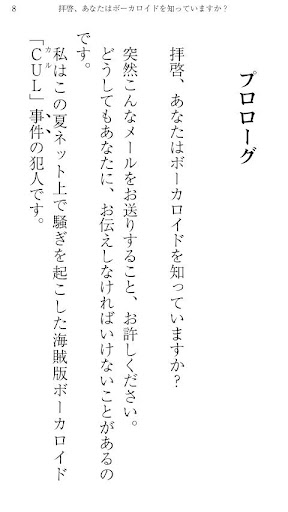 8
拝啓、あなたはボーカロイドを知っていますか？
プロローグ
拝啓、あなたはボーカロイドを知っていますか？
突然こんなメールをお送りすること、お許しください。
どうしてもあなたに、お伝えしなければいけないことがあるの
です。
私はこの夏ネット上で騒ぎを起こした海賊版ボーカロイド
「CUL」事件の犯人です。
カル